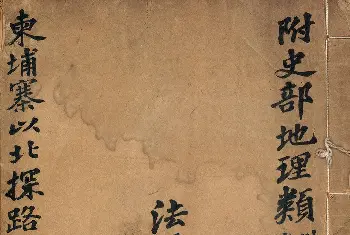 附史部地理類
法
柬埔寨以北探路